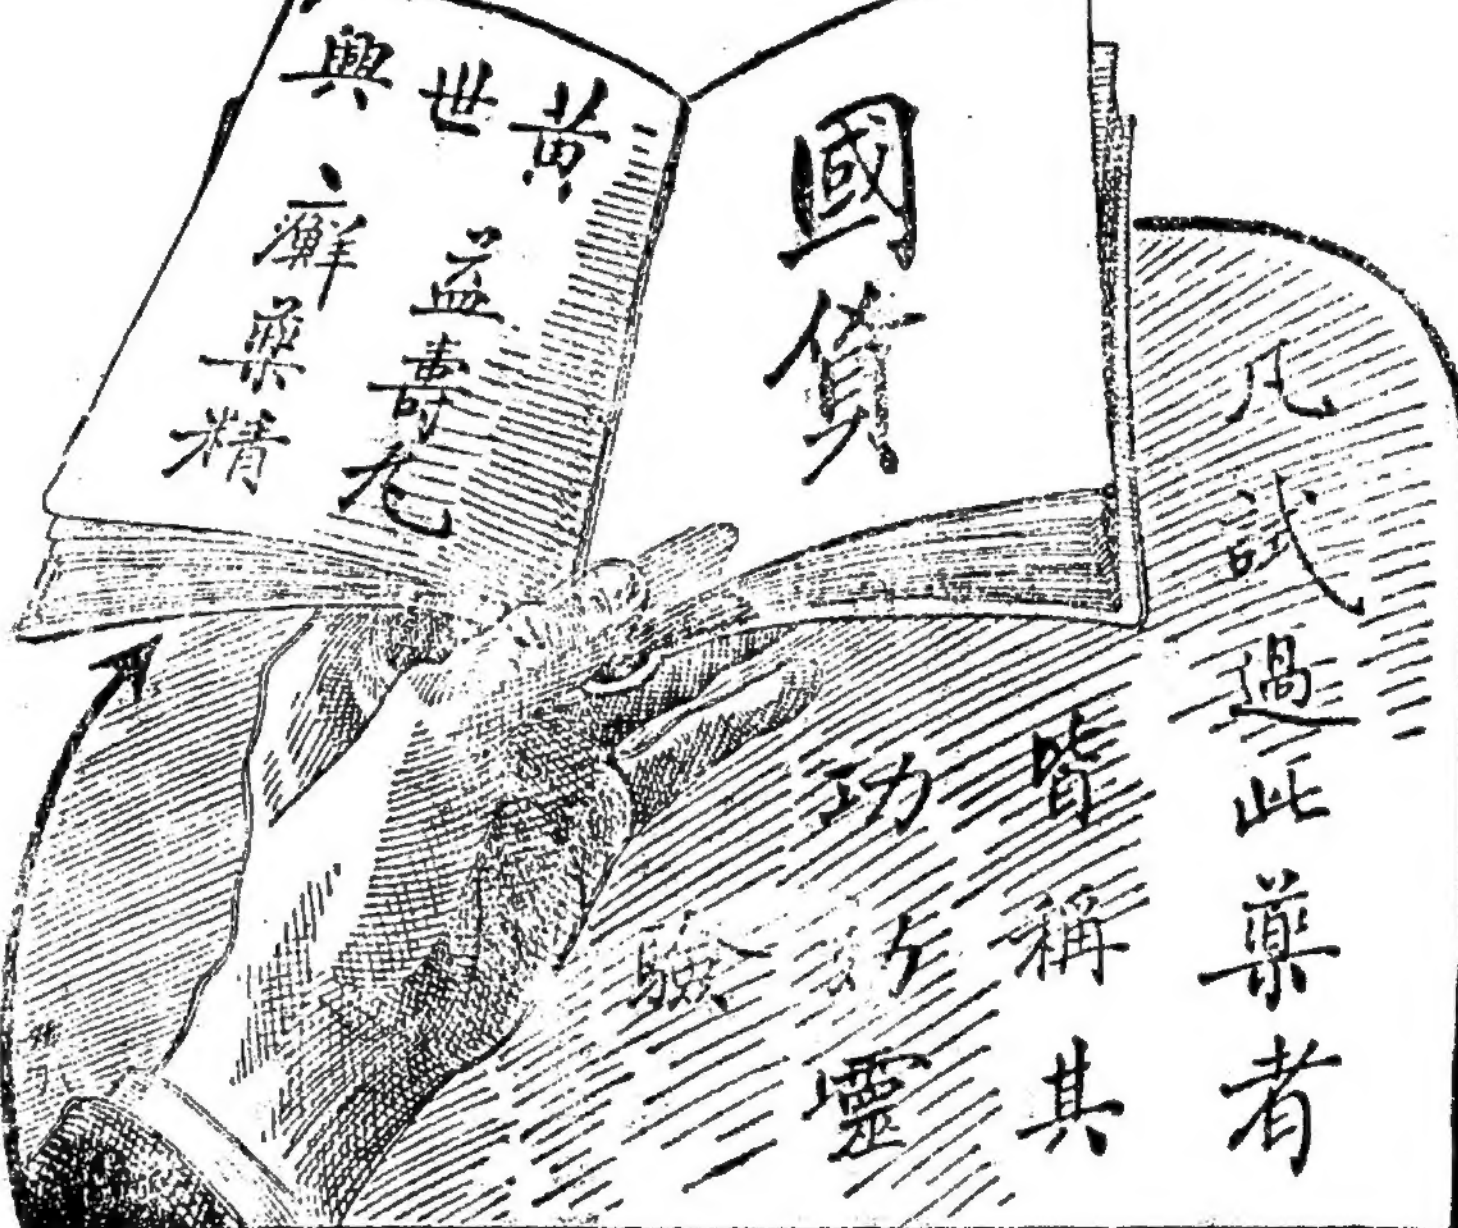 國貨
黃世興
益壽
癬藥精
凡試過此藥者
皆稱其
功靈
驗